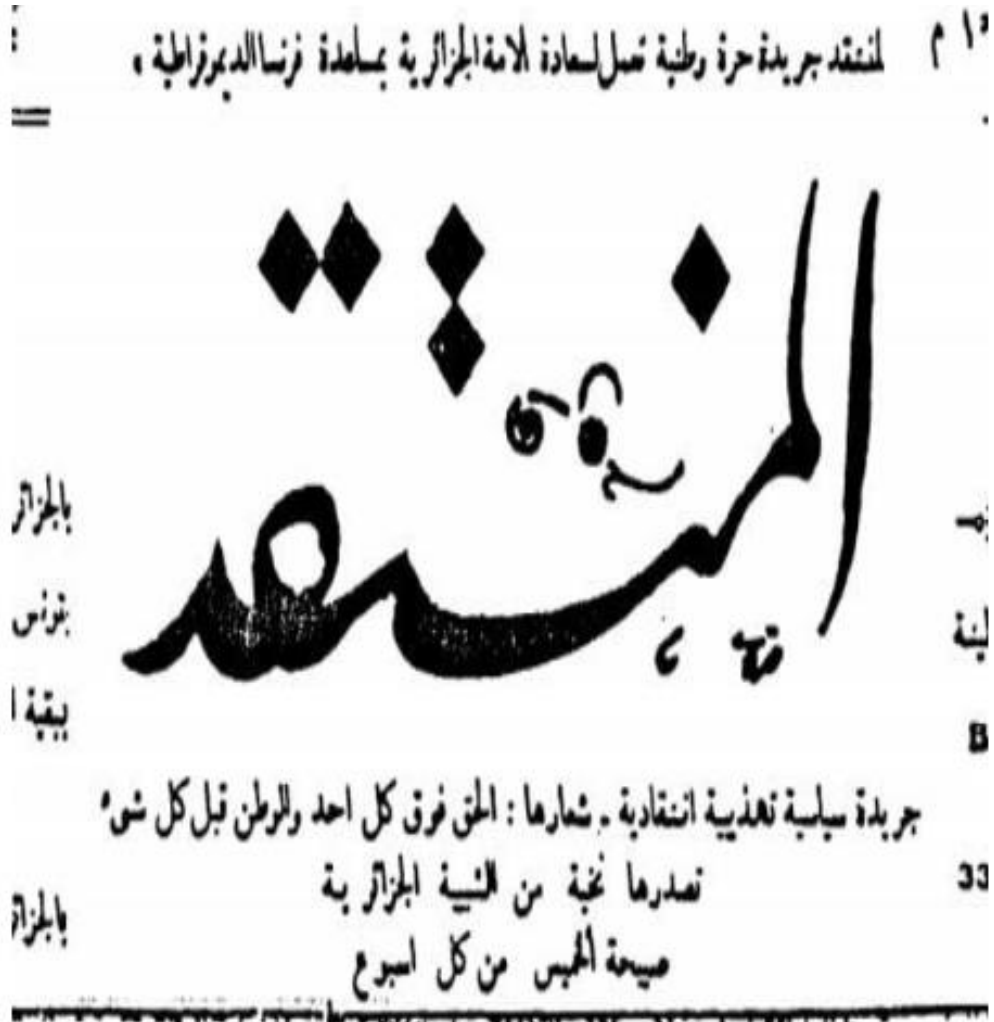 لمنتقد جريدة حرة وطنية تعمل لسعادة الامة الجزائرية بمساعدة فرنسا الديموقراطية »
المنتقد
بالجزائر
بتونس
ببقية ا
B
جريدة سياسية تهذيبية انتقادية ـ شعارها : الحق فوق كل احد والوطن قبل كل شيء
تصدرها نخبة من الشبيبة الجزائرية
33
بالجزائر
صبيحة الخميس من كل اسبوع